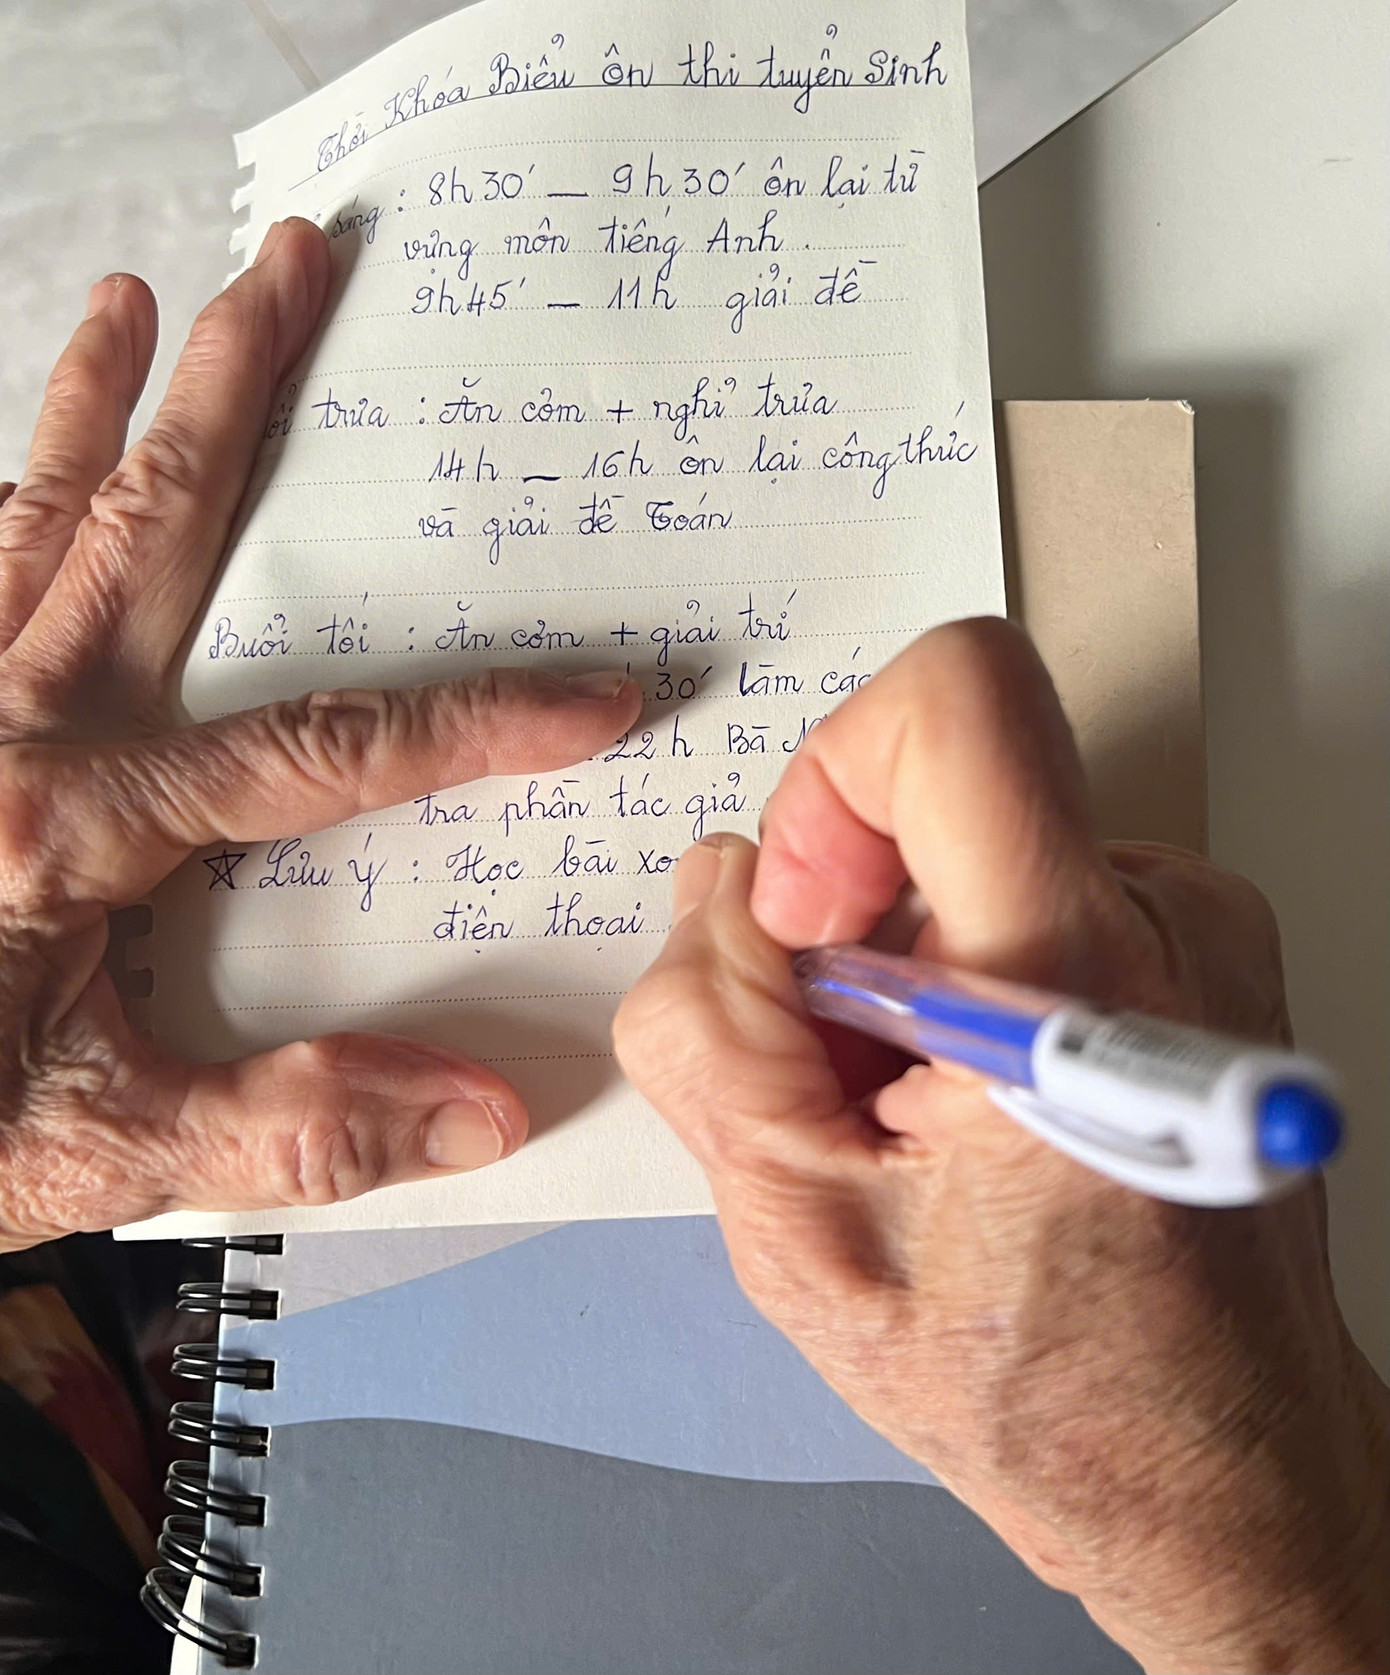 Thời Khóa Biểu ôn thi tuyển Sinh
sáng : 8h30' _ 9h30' ôn lại từ
vựng môn tiếng Anh.
9h45' _ 11h giải đề
trưa : Ăn cơm + nghỉ trưa
14h _ 16h ôn lại công thức
và giải đề Toán
Buổi tối : Ăn cơm + giải trí
30' làm các
22h Bà
tra phần tác giả
☆ Lưu ý : Học bài
điện thoại